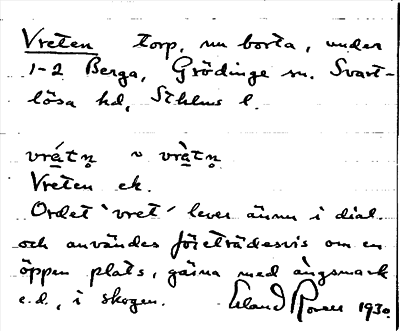 Vreten torp, nu borta, under
1-2 Berga, Grödinge sn. Svart-
lösa hd, Sthlms l.
vrátn̥ ~ vràtn̥
Vreten ek.
Ordet ´vret´ lever ännu i dial.
och användes företrädesvis om en
öppen plats, gärna med ängsmark
e.d., i skogen. Erland Rosell 1930